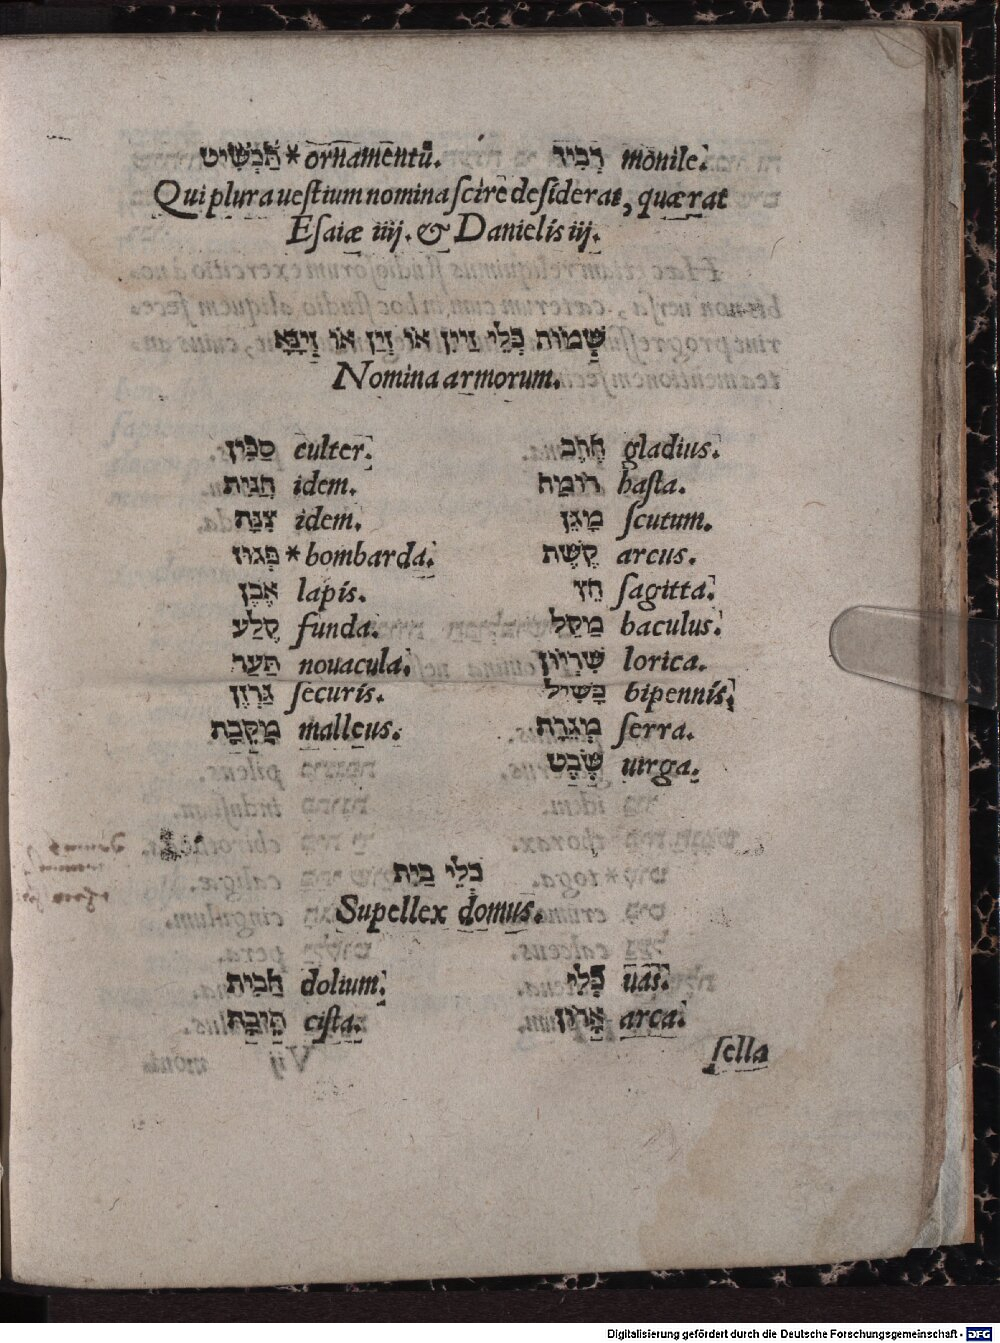 תַּכְשִׁיט * ornamentū. רְבִיד monile.
Qui plura vestium nomina scire desiderat, quærat
Esaiæ iiij. & Danielis iij.
שְׁמוֹת כְּלֵי זַיִין אוֹ זַיִן אוֹ זְיָנָא
Nomina armorum.
סַכִּין culter. חֶרֶב gladius.
חֲנִית idem. רוֹמַח hasta.
צִנָּה idem. מָגֵן scutum.
* bombarda. קֶשֶׁת arcus.
אֶבֶן lapis. חֵץ sagitta.
קֶלַע funda. מַקֵּל baculus.
תַּעַר nouacula. שִׁרְיוֹן lorica.
גַּרְזֶן securis. כַּשִּׁיל bipennis.
מַקֶּבֶת malleus. מְגֵרָה serra.
שֵׁבֶט uirga.
כְּלֵי בַיִת
Supellex domus.
חָבִית dolium. כְּלִי uas.
תֵּיבָה cista. אָרוֹן arca.
sella
Digitalisierung gefördert durch die Deutsche Forschungsgemeinschaft - DFG